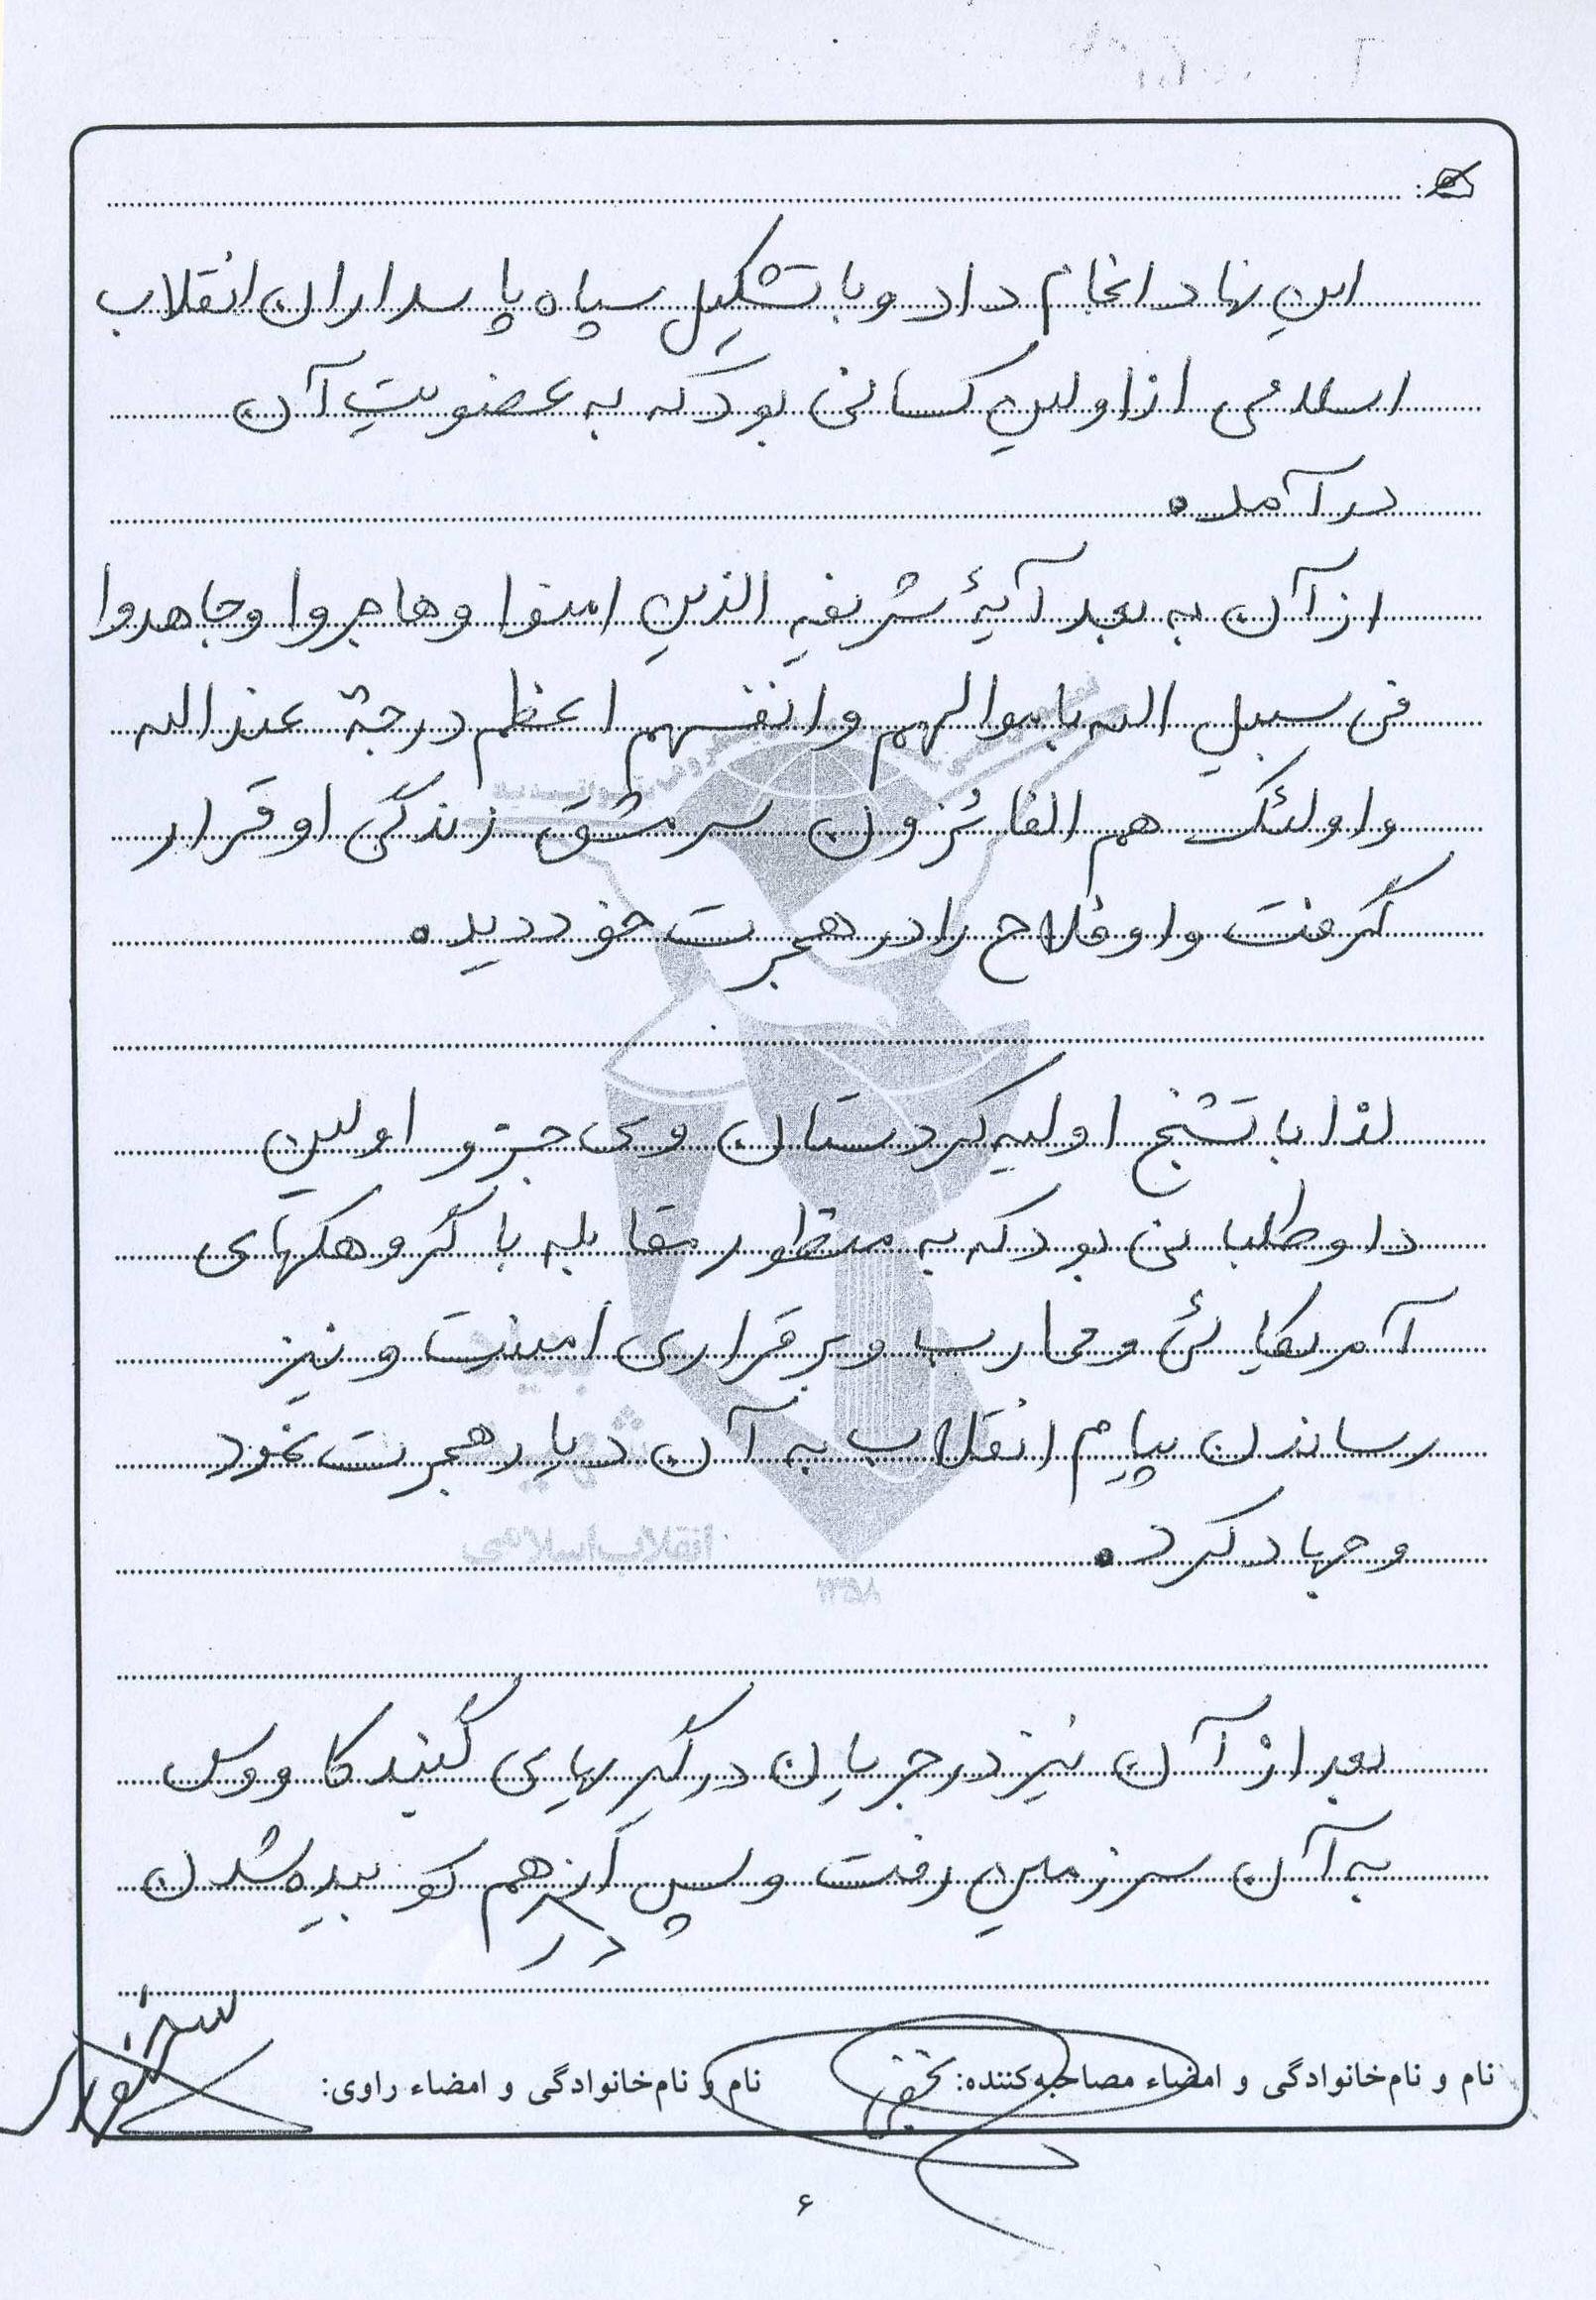 این نهاد انجام داد و با تشکیل سپاه پاسداران انقلاب
اسلامی از اولین کسانی بود که به عضویت آن
در آمد.
از آن به بعد آیهٔ شریفه الذین امنوا و هاجروا و جاهدوا
فی سبیل الله باموالهم و انفسهم اعظم درجة عندالله
و اولئک هم الفائزون سرمشق زندگی او قرار
گرفت و او فلاح را در هجرت خود دید.
لذا با تشنج اولیه کردستان وی جزو اولین
داوطلبانی بود که به منظور مقابله با گروهکهای
آمریکائی و محارب و برقراری امنیت و نیز
رساندن پیام انقلاب به آن دیار هجرت نمود
و جهاد کرد.
بعد از آن نیز در جریان درگیریهای گنبد کاووس
به آن سرزمین رفت و سپس از هم کوبیده شدن
در
نام و نام‌خانوادگی و امضاء مصاحبه‌کننده:
نام و نام‌خانوادگی و امضاء راوی:
۶
بنیاد
شهید
انقلاب اسلامی
۱۳۵۸